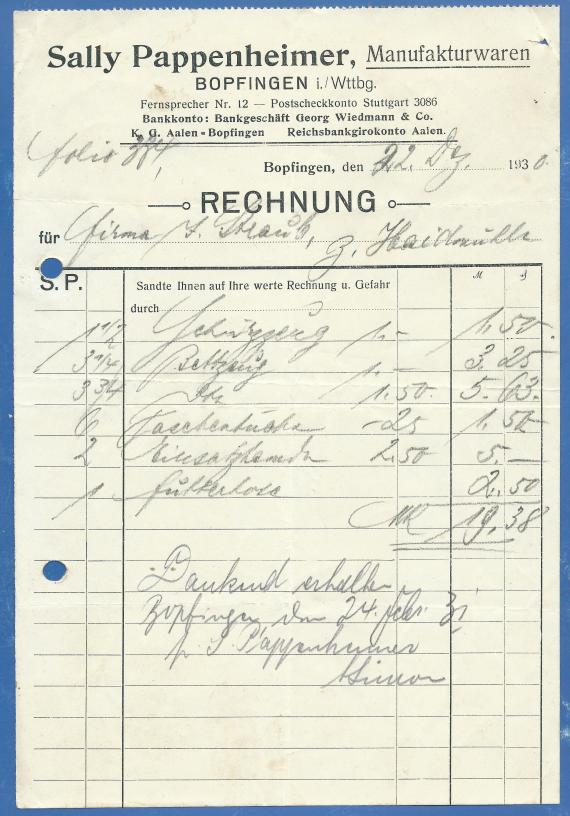 Sally Pappenheimer, Manufakturwaren
BOPFINGEN i./Wttbg.
Fernsprecher Nr. 12 — Postscheckkonto Stuttgart 3086
Bankkonto: Bankgeschäft Georg Wiedmann & Co.
K. G. Aalen-Bopfingen Reichsbankgirokonto Aalen.
folio 384,
Bopfingen, den 22. Dez. 1930.
RECHNUNG
für Firma J. Straub, z. Haidmühle
S. P. Sandte Ihnen auf Ihre werte Rechnung u. Gefahr M ₰
durch
1 1/2 Schürzzeug 1.- 1. 50.
3 1/4 Bettzeug 1.- 3. 25
3 3/4 Do 1.50. 5. 63.
6 Taschentücher -25 1. 50
2 Einsatzhemden 2.50 5. -
1 Futterhose 2. 50
MK 19. 38
Dankend erhalten
Bopfingen den 24. Febr. 31
p. S. Pappenheimer
Simon